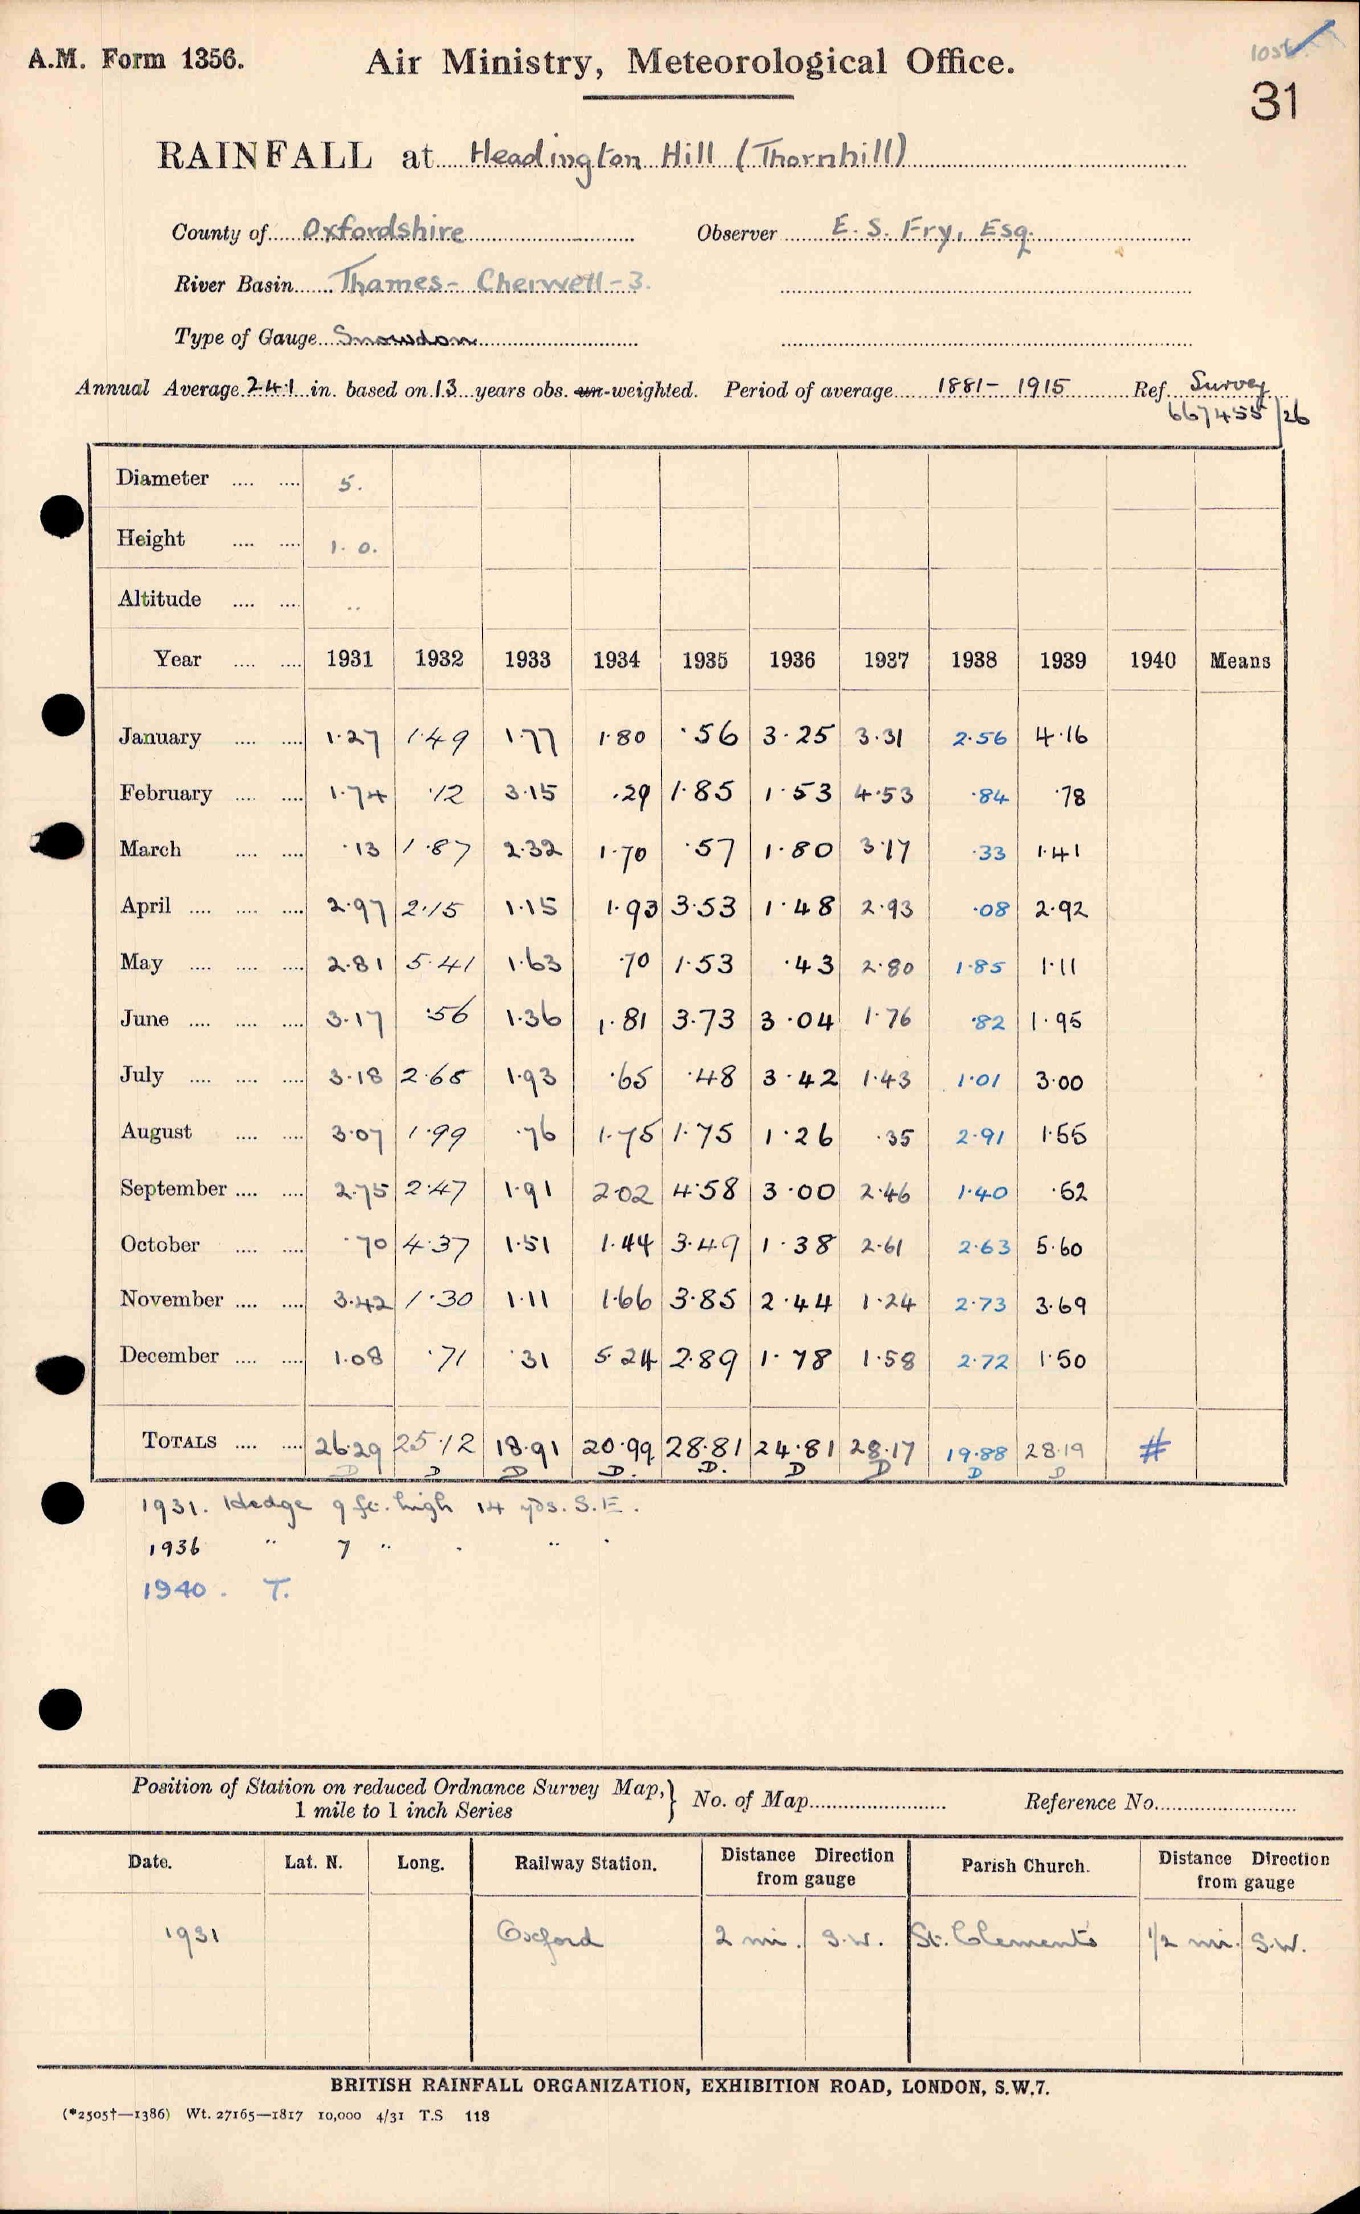 A.M. Form 1356.
Air Ministry, Meteorological Office.
31
RAINFALL at Headington Hill (Thornhill)
County of Oxfordshire Observer E. S. Fry, Esq.
River Basin Thames - Cherwell - 3.
Type of Gauge Snowdon
Annual Average 24.1 in. based on 13 years obs. un-weighted. Period of average 1881 - 1915 Ref. Survey
667455/26
Diameter .... .... 5.
Height .... .... 1. 0.
Altitude .... .... ..
Year .... .... 1931 1932 1933 1934 1935 1936 1937 1938 1939 1940 Means
January .... .... 1.27 1.49 1.77 1.80 .56 3.25 3.31 2.56 4.16
February .... .... 1.74 .12 3.15 .29 1.85 1.53 4.53 .84 .78
March .... .... .13 1.87 2.32 1.70 .57 1.80 3.17 .33 1.41
April .... .... .... 2.97 2.15 1.15 1.93 3.53 1.48 2.93 .08 2.92
May .... .... .... 2.81 5.41 1.63 .70 1.53 .43 2.80 1.85 1.11
June .... .... .... 3.17 .56 1.36 1.81 3.73 3.04 1.76 .82 1.95
July .... .... .... 3.18 2.68 1.93 .65 .48 3.42 1.43 1.01 3.00
August .... .... 3.07 1.99 .76 1.75 1.75 1.26 .35 2.91 1.55
September .... .... 2.75 2.47 1.91 2.02 4.58 3.00 2.46 1.40 .52
October .... .... .70 4.37 1.51 1.44 3.49 1.38 2.61 2.63 5.60
November .... .... 3.42 1.30 1.11 1.66 3.85 2.44 1.24 2.73 3.69
December .... .... 1.08 .71 .31 5.24 2.89 1.78 1.58 2.72 1.50
TOTALS .... .... 26.29 25.12 18.91 20.99 28.81 24.81 28.17 19.88 28.19 #
D D D D. D. D D D D
1931. Hedge 9 ft. high 14 yds. S.E.
1936 " 7 " . " .
1940. T.
Position of Station on reduced Ordnance Survey Map,
1 mile to 1 inch Series
No. of Map Reference No.
Date. Lat. N. Long. Railway Station. Distance Direction from gauge Parish Church. Distance Direction from gauge
1931 Oxford 2 mi. S.W. St. Clement's 1/2 mi. S.W.
BRITISH RAINFALL ORGANIZATION, EXHIBITION ROAD, LONDON, S.W.7.
(*2505†—1386) Wt. 27165—1817 10,000 4/31 T.S 118